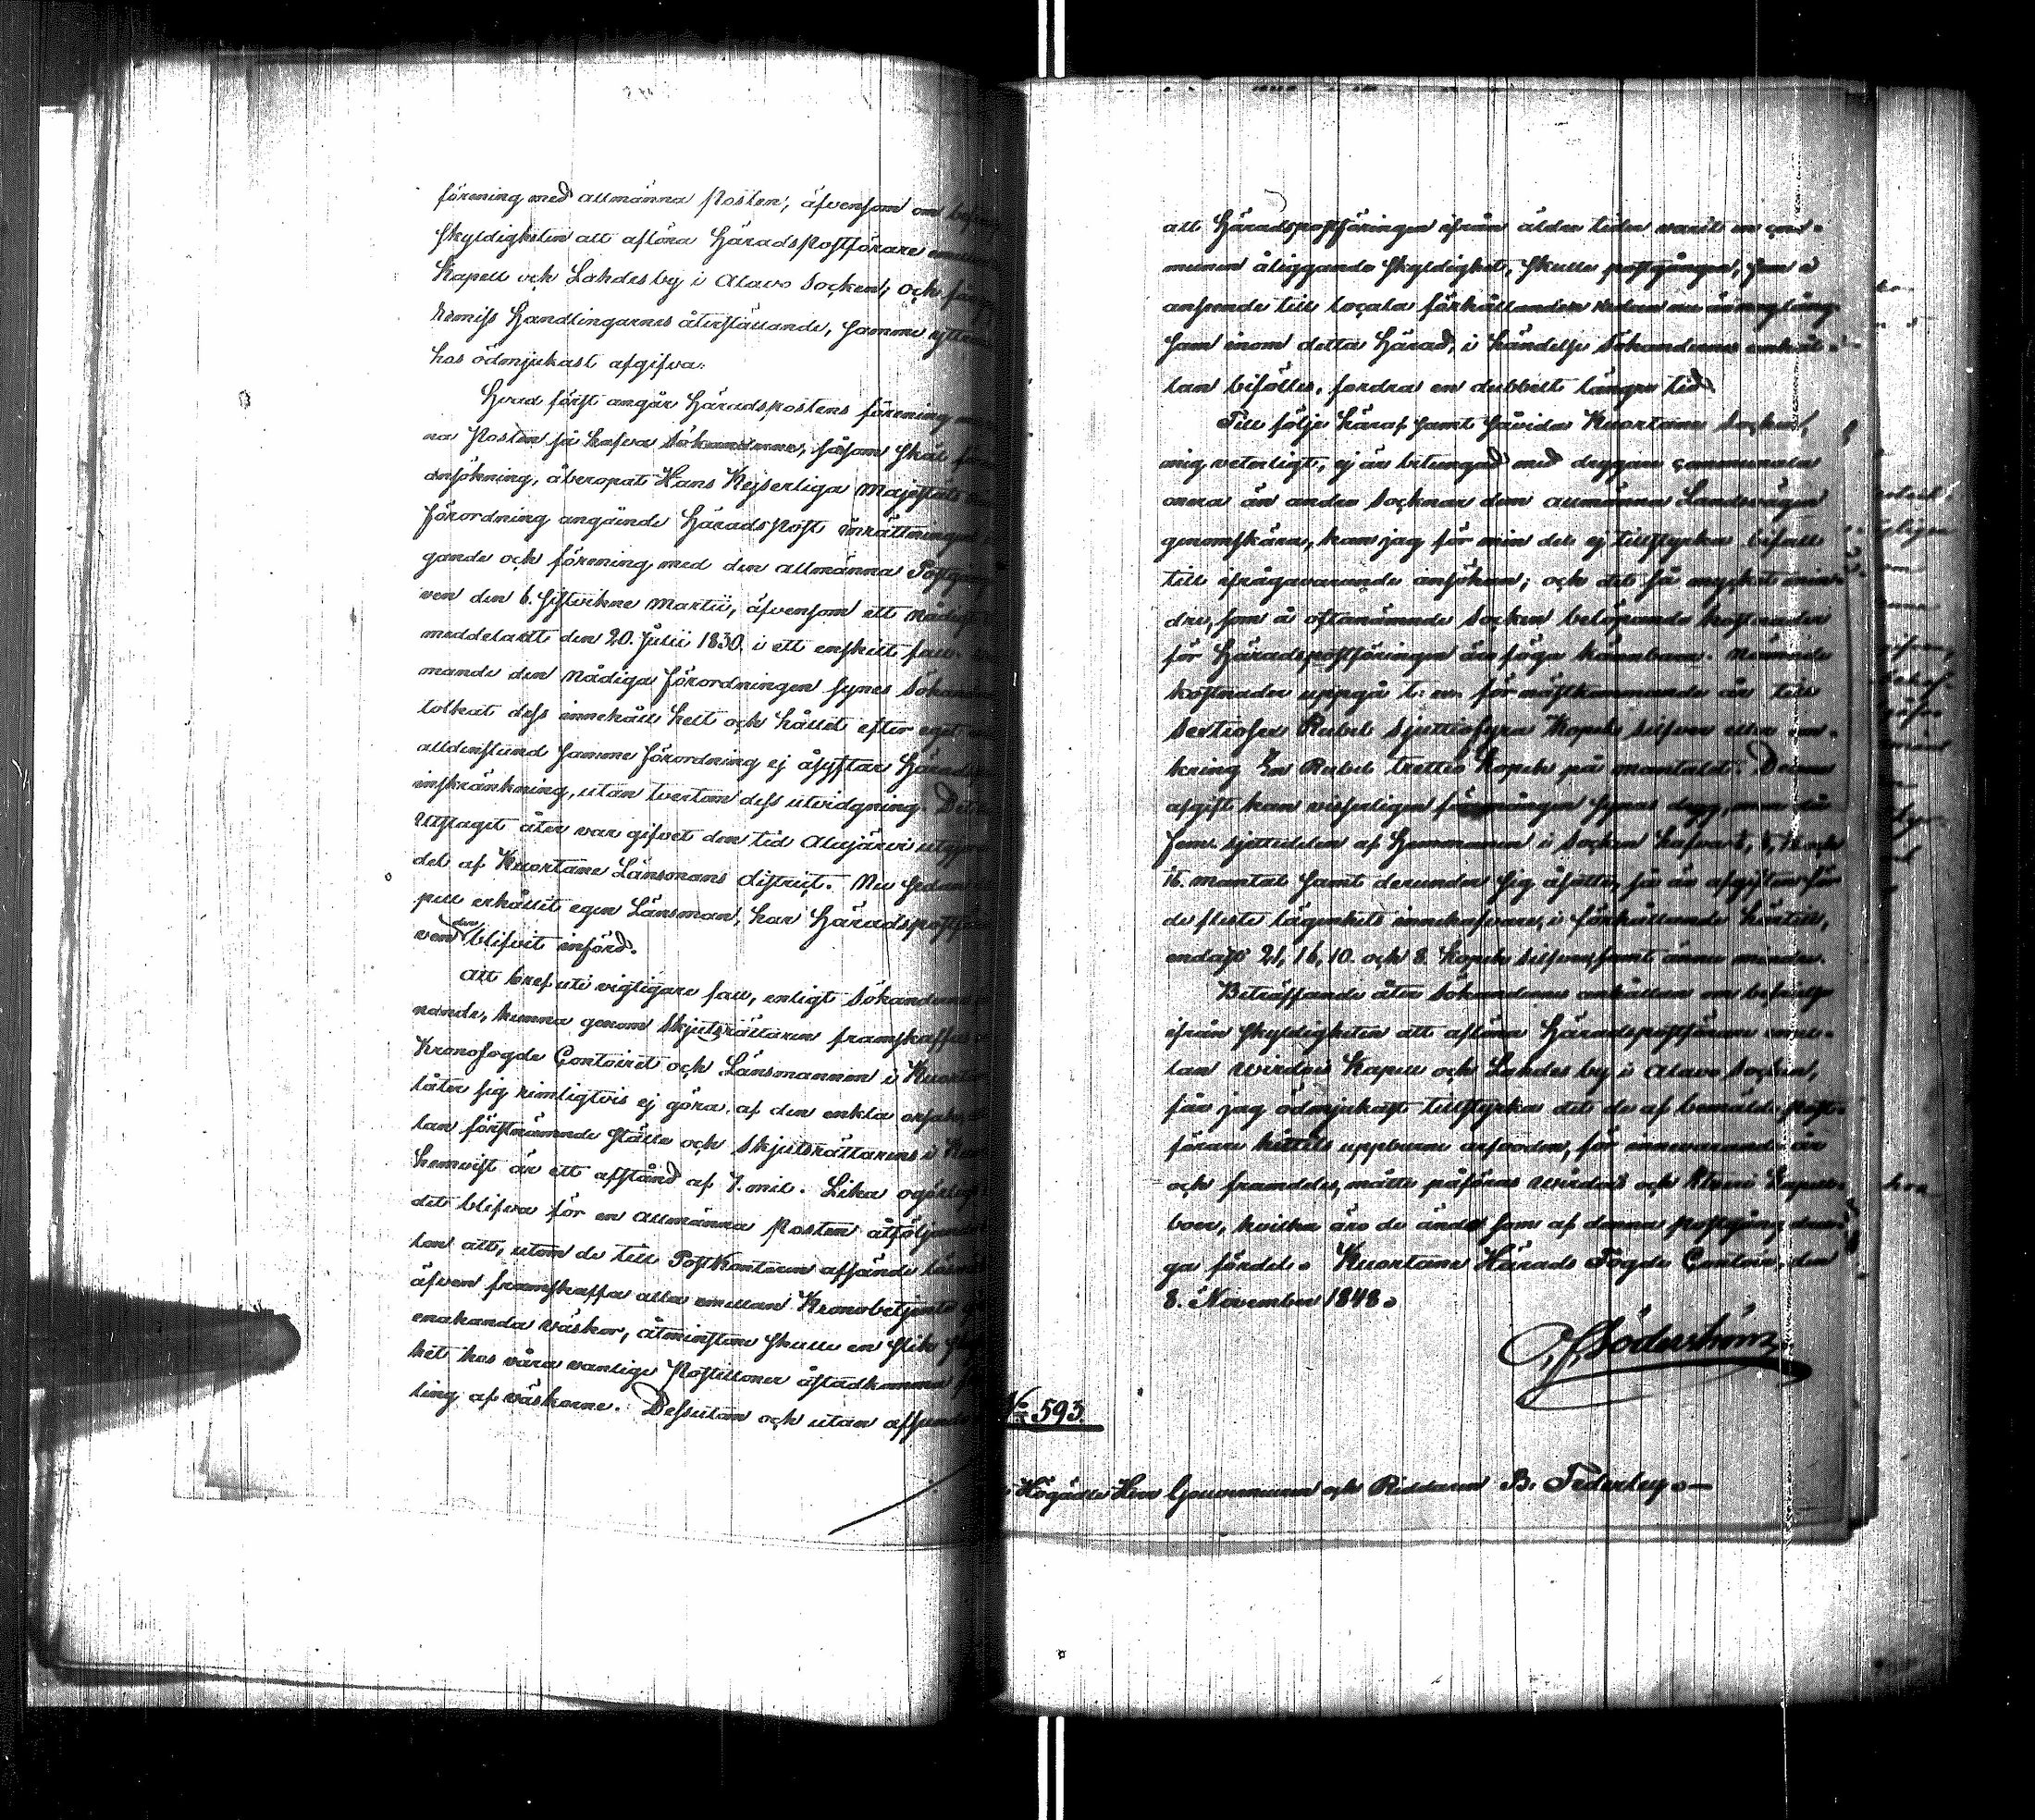 förening med allmänna Posten, äfvensom om
skyldigheten att aflöna HäradsPostförare
Kapell och Lahdesby i Alavo Socken, och får
Remiss Handlingarnes återställande, samme
hos ödmjukast afgifva:
Hvad först angår Häradspostens förening
na Posten så hafva Sökanderne, såsom skäl för
ansökning, åberopat Hans Kejserliga Majestäts
Förordning angående HäradsPost inrättningen
gande och förening med den allmänna Postgång
ven den 6. sistvikne Martii, äfvensom ett Nådigt
meddeladt den 20. Julii 1830. i ett enskilt fall.
mande den Nådiga Förordningen synes Sökande
tolkat dess innehåll helt och hållet efter eget
alldenstund samme Förordning ej åsyftar Härads
inskränkning, utan tvertom dess utvidgning. Det
Utslaget åter var gifvet den tid Alajärvi utgjorde
del af Kuortane Länsmans district. Nu sedan
pell erhållit egen Länsman, har Häradspostför
ven den blifvit införd.
Att bref uti vigtigare fall, enligt Sökanderne
nande, kunna genom Skjutsrättaren framskaffas
Kronofogde Contoiret och Länsmannen i Kuortane
låter sig rimligtvis ej göra, af den enkla orsak, att
lan förstnämnde ställe och Skjutsrättarens i Kuor
hemvist är ett afstånd af 7. mil. Lika ogörligt
det blifva för en allmänna Posten åtföljande
lon att, utom de till PostKontoren afsände
äfven framskaffa alla emellan Kronobetjente
enahanda väskor, åtminstone skulle en slik
het hos våra vanlige Postilloner åstadkomma
ling af väskorne. Dessutom och utan afseende
att Häradspostföringen ifrån äldre tider varit en com-
munen åliggande skyldighet, skulle postgången, som i
anseende till locala förhållanden redan nu är nog lång-
sam inom detta Härad, i händelse Sökandernes anhål-
lan bifölles, fordra en dubbelt längre tid.
Till följe häraf samt såvida Kuortane Socken,
mig veterligt, ej är betungad med drygare communala
onera än andre Socknar dem allmänna Landsvägen
genomskära, kan jag för min del ej tillstyrka bifall
till ifrågavarande ansökan; och det så mycket min-
dre, som å oftanämnde Socken belöpande kostnader
för Häradspostföringen äro föga kännbara. Nämnde
kostnader uppgå t. ex. för nästkommande år till
Sextiosex Rubel Sjuttiofyra Kopek Silfver eller om-
kring En Rubel trettio Kopek på mantalet. Denna
afgift kan visserligen för mången synas dryg, men då
fem sjettedelar af Hemmanen i Socken hafva
16. mantal samt derunder sig åsatte, så är afgiften för
de fleste lägenhets innehafvare, i förhållande härtill,
endast 21, 16, 10. och 8. Kopek Silfver samt ännu mindre.
Beträffande åter Sökandernes anhållan om befrielse
ifrån skyldigheten att aflöna Häradspostförare emel-
lan Wirdois Kapell och Lahdesby i Alavo Socken,
får jag ödmjukast tillstyrka det de af bemälde Post-
förare hittills uppburne arfvoden, för innevarande år
och framdeles, måtte påföras Wirdois och Etseri Kapell-
boer, hvilka äro de ände som af denna postgång dra-
ga fördel. Kuortane Härads Fogde Contoir, den
8. November 1848.
Söderström
No 593.
Högädle Herr Gouverneuren och Riddaren B. Federley.